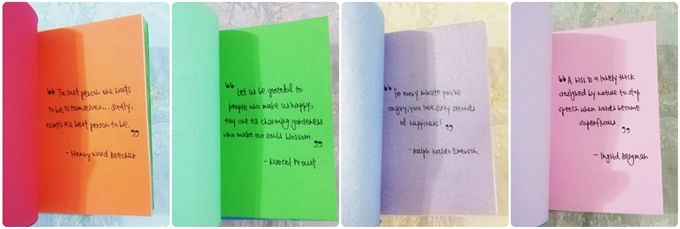 "The best person one wants
to be is themselves... Sadly,
that's the best person to be."
- Henry Ward Beecher
"Let us be grateful to
people who make us happy,
they are the charming gardeners
who make our souls blossom."
- Marcel Proust
"For every minute you're
angry, you lose sixty seconds
of happiness!"
- Ralph Waldo Emerson
"A kiss is a lovely trick
designed by nature to stop
speech when words become
superfluous."
- Ingrid Bergman